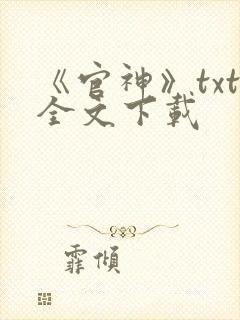 《官神》txt
全文下載
霏傾